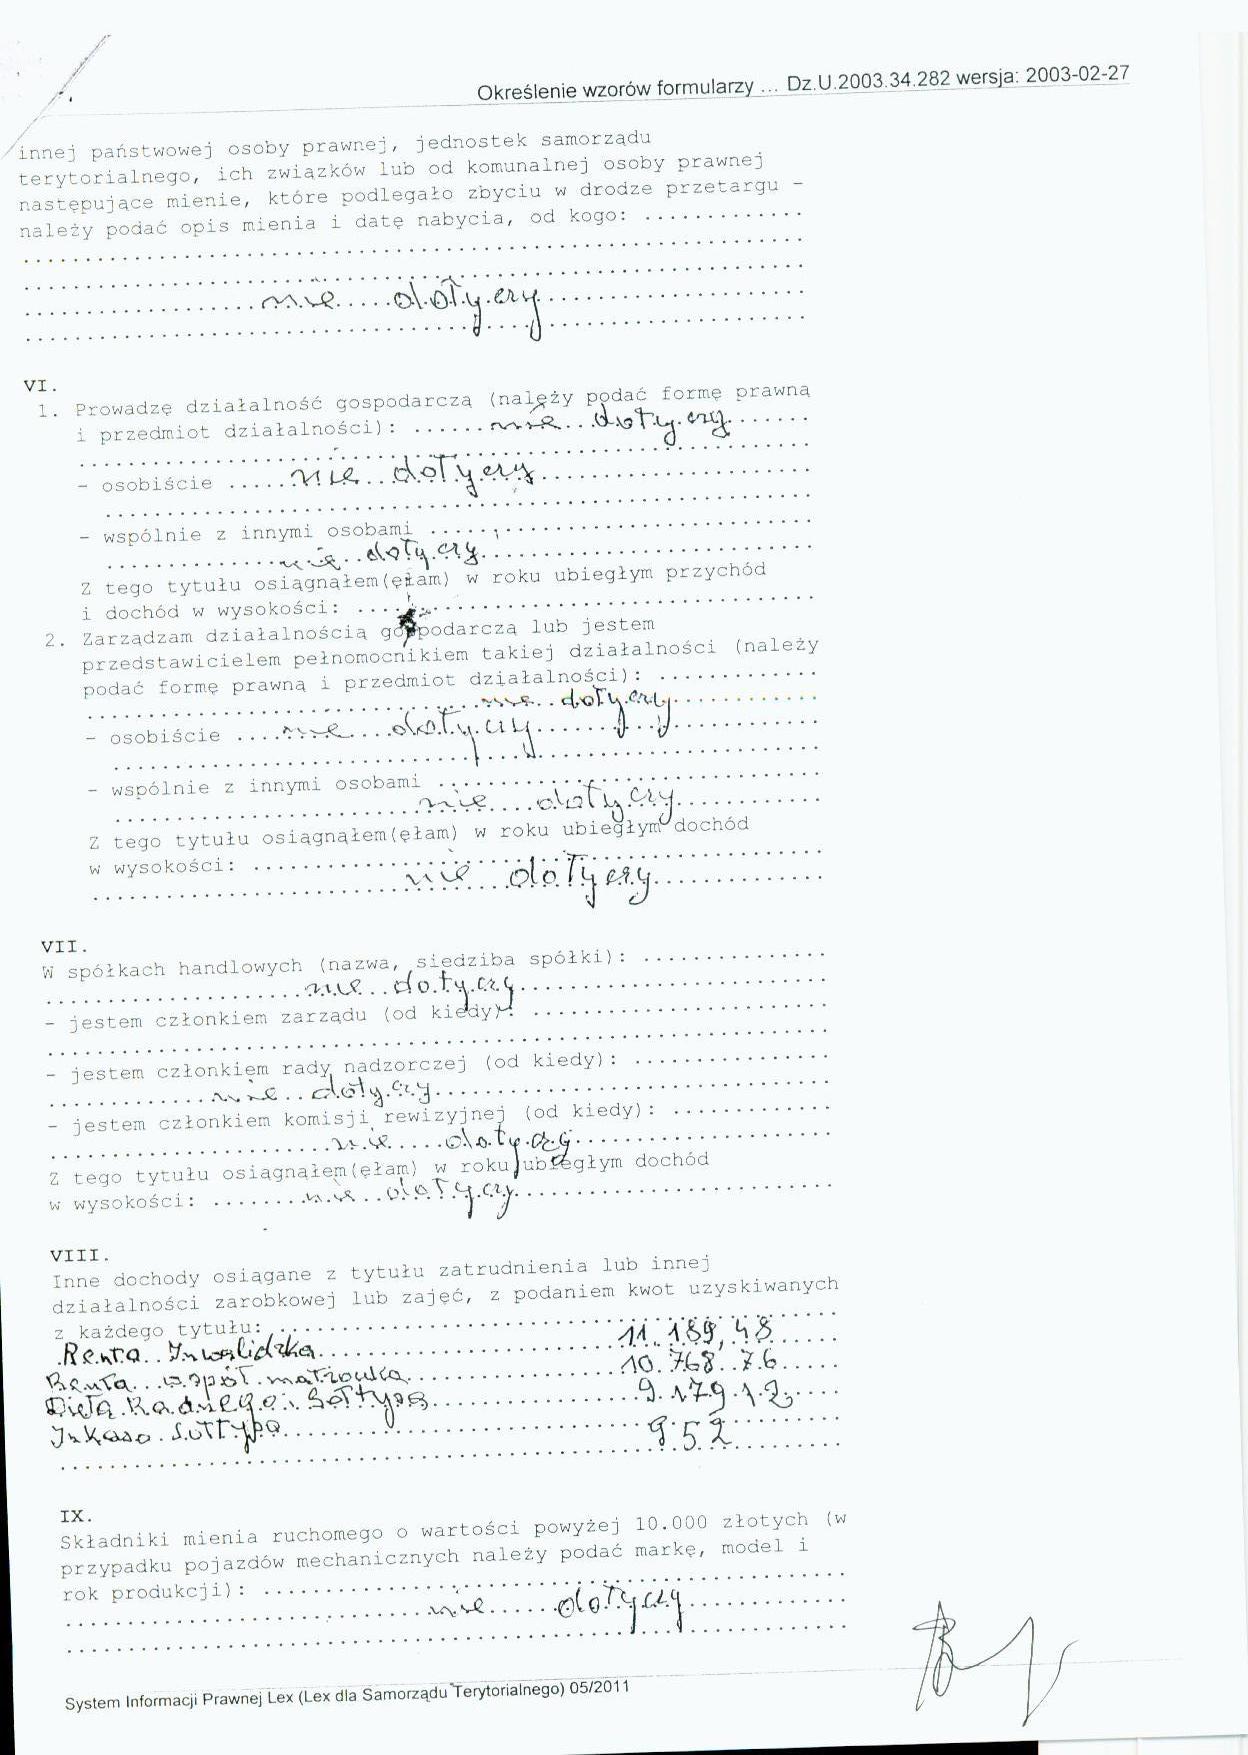 Określenie wzorów formularzy ... Dz.U.2003.34.282 wersja: 2003-02-27
innej państwowej osoby prawnej, jednostek samorządu
terytorialnego, ich związków lub od komunalnej osoby prawnej
następujące mienie, które podlegało zbyciu w drodze przetargu -
należy podać opis mienia i datę nabycia, od kogo: .............
nie dotyczy
VI.
1. Prowadzę działalność gospodarczą (należy podać formę prawną
i przedmiot działalności): ...... nie dotyczy
- osobiście ..... nie dotyczy
- wspólnie z innymi osobami .....
nie dotyczy
Z tego tytułu osiągnąłem(ęłam) w roku ubiegłym przychód
i dochód w wysokości: ....
2. Zarządzam działalnością gospodarczą lub jestem
przedstawicielem pełnomocnikiem takiej działalności (należy
podać formę prawną i przedmiot działalności): .............
nie dotyczy
- osobiście .... nie dotyczy
- wspólnie z innymi osobami ....
nie dotyczy
Z tego tytułu osiągnąłem(ęłam) w roku ubiegłym dochód
w wysokości: ....
nie dotyczy
VII.
W spółkach handlowych (nazwa, siedziba spółki): ...............
nie dotyczy
- jestem członkiem zarządu (od kiedy): ....
- jestem członkiem rady nadzorczej (od kiedy): ................
nie dotyczy
- jestem członkiem komisji rewizyjnej (od kiedy): .............
nie dotyczy
Z tego tytułu osiągnąłem(ęłam) w roku ubiegłym dochód
w wysokości: ....... nie dotyczy
VIII.
Inne dochody osiągane z tytułu zatrudnienia lub innej
działalności zarobkowej lub zajęć, z podaniem kwot uzyskiwanych
z każdego tytułu: ....
Renta Inwalidzka 11.189,48
Renta współ.matrowka 10.768.76
Dieta Radnego i Sołtysa 9.179.12
Inkaso Sołtysa 952
IX.
Składniki mienia ruchomego o wartości powyżej 10.000 złotych (w
przypadku pojazdów mechanicznych należy podać markę, model i
rok produkcji): ....
nie dotyczy
System Informacji Prawnej Lex (Lex dla Samorządu Terytorialnego) 05/2011